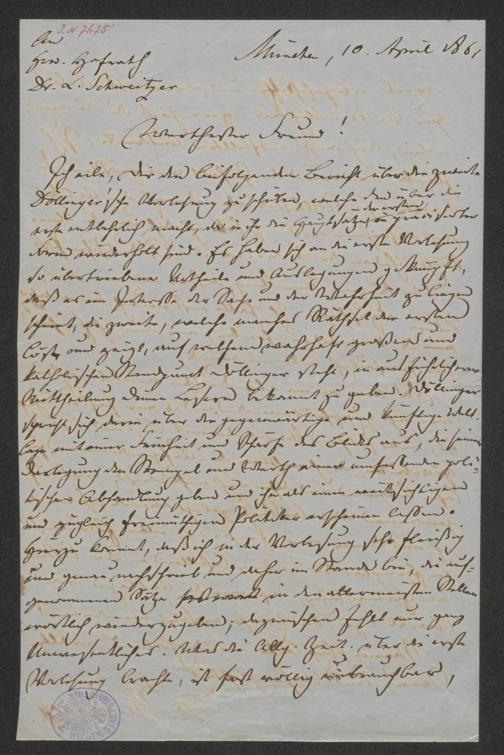 J.N. 7675
An
Hrn. Hofrath
Dr. L. Schweitzer
München, 10. April 1861
Werthester Freund!
Ich eile, Dir den beifolgenden Bericht über die zweite
Döllinger'sche Vorlesung zuzusenden, welche den über die
erste entbehrlich macht, da in ihr die Hauptsätze der ersten in präcisirter
Form wiederholt sind. Es haben sich an die erste Vorlesung
so übertriebene Urtheile und Auslegungen geknüpft,
daß es im Interesse der Sache und der Wahrheit zu liegen
scheint, die zweite, welche manches Räthsel der ersten
löst und zeigt, auf welchem wahrhaft großen und
katholischen Standpunct Döllinger steht, in ausführlicherer
Mittheilung Deinen Lesern bekannt zu geben. Döllinger
spricht sich darin über die gegenwärtige und künftige Welt-
lage mit einer Feinheit und Schärfe des Blicks aus, die seiner
Darlegung den Stempel und Werth einer umfassenden poli-
tischen Abhandlung geben und ihn als einen weitsichtigen
und zugleich freimüthigen Politiker erscheinen lassen.
Hierzu kommt, daß ich in der Vorlesung sehr fleißig
und genau nachschrieb und daher im Stande bin, die auf-
genommenen Sätze in den allermeisten Stellen
wörtlich wiederzugeben; dazwischen fehlt nur ganz
Unwesentliches. Was die Allg. Zeit. über die erste
Vorlesung brachte, ist fast völlig unbrauchbar,